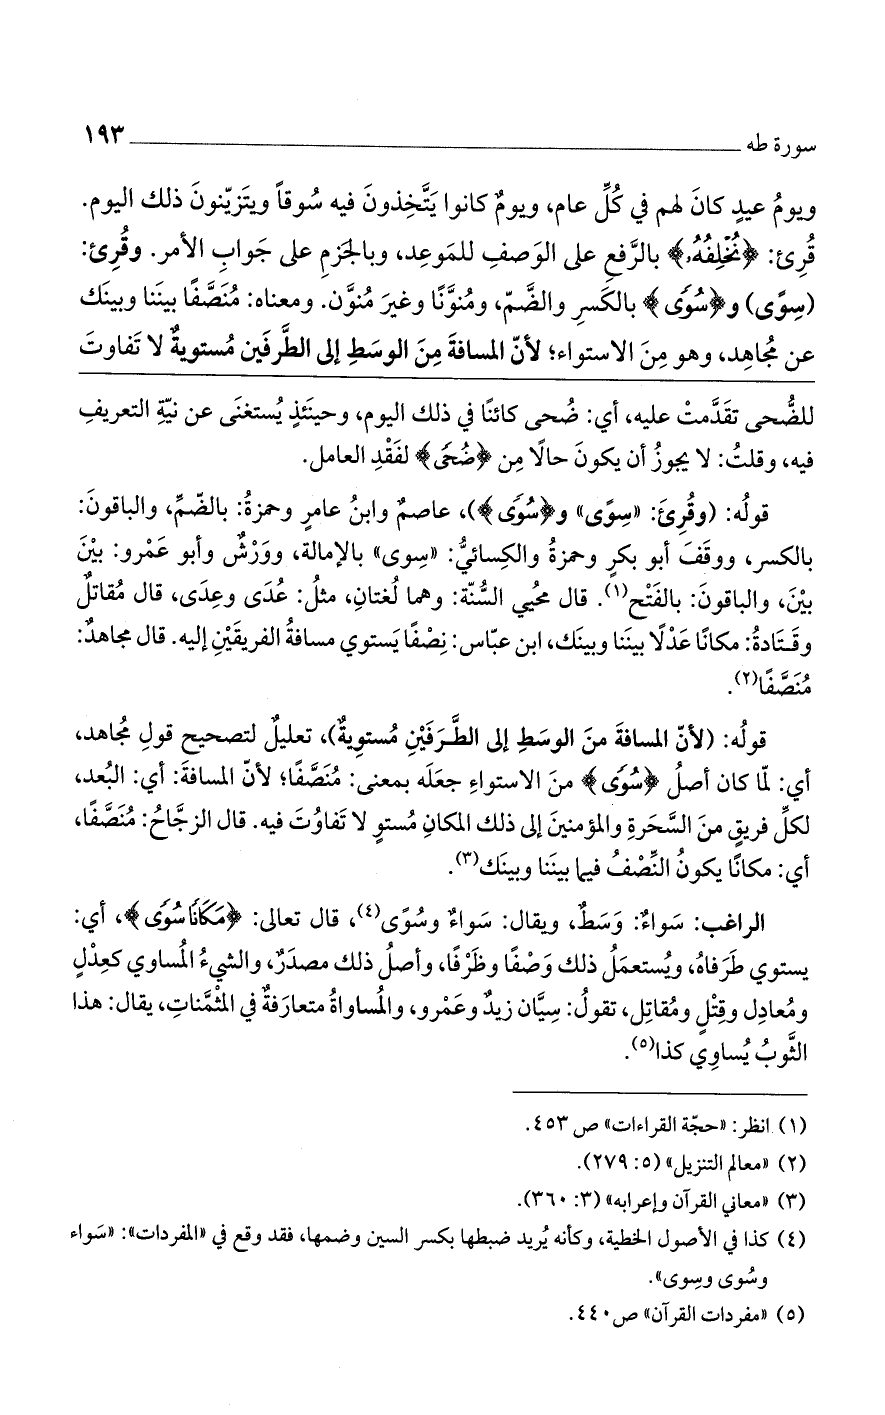 سورة طه ١٩٣
ويومُ عيدٍ كانَ لهم في كُلِّ عام، ويومٌ كانوا يَتَّخِذونَ فيه سُوقاً ويتَزيّنونَ ذلك اليوم.
قُرِئ: ﴿نُخْلِفُهُۥ﴾ بالرَّفعِ على الوَصفِ للمَوعِد، وبالجَزمِ على جَوابِ الأمر. وقُرِئ:
(سِوًى) و﴿سُوًى﴾ بالكَسرِ والضَّمّ، ومُنوَّنًا وغيرَ مُنوَّن. ومعناه: مُنَصَّفًا بينَنا وبينَك
عن مُجاهِد، وهو مِنَ الاستواء؛ لأنّ المسافةَ مِنَ الوسَطِ إلى الطَّرفَين مُستويةٌ لا تَفاوتَ
للضُّحى تقدَّمتْ عليه، أي: ضُحى كائنًا في ذلك اليوم، وحينَئذٍ يُستغنَى عن نيّةِ التعريفِ
فيه، وقلتُ: لا يجوزُ أن يكونَ حالًا مِن ﴿ضُحًى﴾ لفَقْدِ العامل.
قولُه: (وقُرِئَ: «سِوًى» و﴿سُوًى﴾)، عاصمٌ وابنُ عامرٍ وحمزةُ: بالضّمِّ، والباقونَ:
بالكسر، ووقَفَ أبو بكرٍ وحمزةُ والكِسائيُّ: «سِوى» بالإمالة، ووَرْشٌ وأبو عَمْرو: بيْنَ
بيْنَ، والباقونَ: بالفَتْح(١). قال محُيي السُّنّة: وهما لُغتان، مثلُ: عُدَى وعِدَى، قال مُقاتلٌ
وقَتَادةُ: مكانًا عَدْلًا بينَنا وبينَك، ابن عبّاس: نِصْفًا يَستوي مسافةُ الفريقَيْنِ إليه. قال مجاهدٌ:
مُنَصَّفًا(٢).
قولُه: (لأنّ المسافةَ منَ الوسَطِ إلى الطَّرفَيْنِ مُستويةٌ)، تعليلٌ لتصحيح قولِ مجُاهد،
أي: لمّا كان أصلُ ﴿سُوًى﴾ منَ الاستواءِ جعَلَه بمعنى: مُنَصَّفًا؛ لأنّ المسافةَ: أي: البُعد،
لكلِّ فريقٍ منَ السَّحَرةِ والمؤمنينَ إلى ذلك المكانِ مُستوٍ لا تَفاوُتَ فيه. قال الزجَّاجُ: مُنَصَّفًا،
أي: مكانًا يكونُ النِّصْفُ فيما بينَنا وبينَك(٣).
الراغب: سَواءٌ: وَسَطٌ، ويقال: سَواءٌ وسُوًى(٤)، قال تعالى: ﴿مَكَانًا سُوًى﴾، أي:
يستوي طَرَفاهُ، ويُستعمَلُ ذلك وَصْفًا وظَرْفًا، وأصلُ ذلك مصدَرٌ، والشيءُ المُساوي كعِدْلٍ
ومُعادِل وقِتْلٍ ومُقاتِل، تقولُ: سِيَّان زيدٌ وعَمْرو، والمُساواةُ متعارَفةٌ في المثْمَّنات، يقال: هذا
الثَّوبُ يُساوِي كذا(٥).
(١) انظر: «حجّة القراءات» ص ٤٥٣.
(٢) «معالم التنزيل» (٥: ٢٧٩).
(٣) «معاني القرآن وإعرابه» (٣: ٣٦٠).
(٤) كذا في الأصول الخطية، وكأنه يُريد ضبطها بكسر السين وضمها، فقد وقع في «المفردات»: «سَواء
وسُوى وسِوى».
(٥) «مفردات القرآن» ص ٤٤٠.